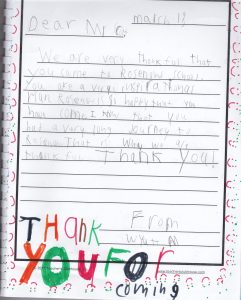 Dear Mr C.
march 12
We are very thankful that
you came to Rosenow School.
You are a very
Man Rosenow is happy that you
have come I now that you
had a very long Journey to
Rosenow That is why we are
thankful. Thank you!
From
THANK
YOU FOR
coming